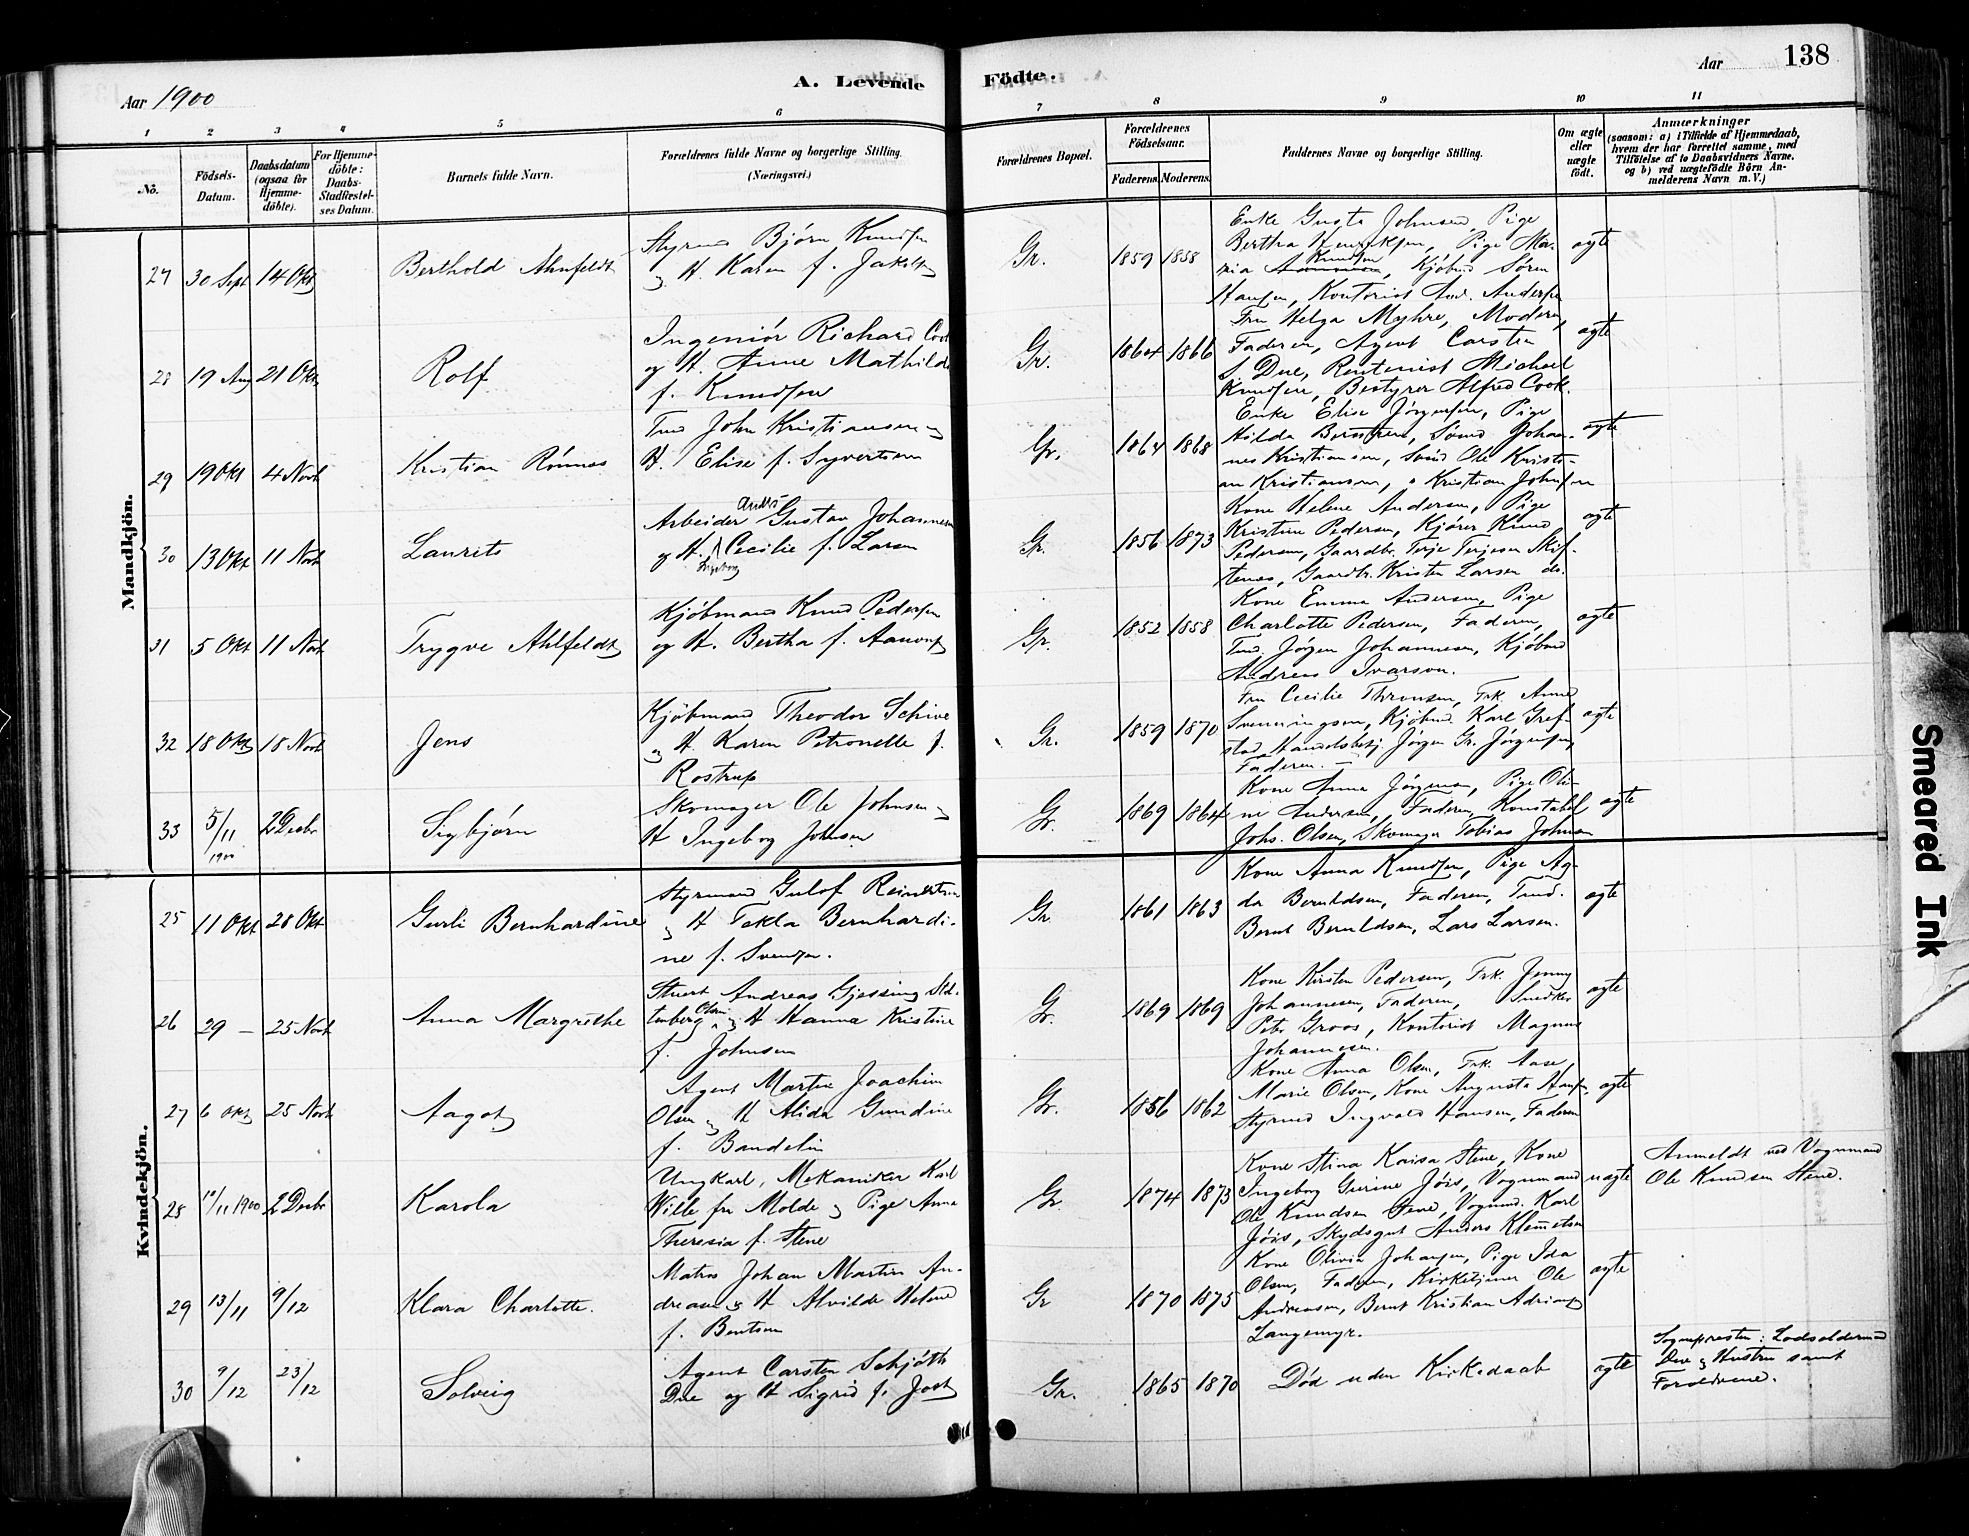 Aar 1900
A. Levende Födte.
Aar 138
1 2 3 4 5 6 7 8 9 10 11
No.
Födsels-Datum.
Daabsdatum (ogsaa for Hjemmedöbte).
For Hjemmedöbte: Daabs-Stadfæstelses Datum.
Barnets fulde Navn.
Forældrenes fulde Navne og borgerlige Stilling. (Næringsvei.)
Forældrenes Bopæl.
Forældrenes Födselsaar.
Faderens. Moderens.
Faddernes Navne og borgerlige Stilling.
Om ægte eller uægte födt.
Anmærkninger
(saasom: a) i Tilfælde af Hjemmedaab, hvem der har forrettet samme, med Tilföielse af to Daabsvidners Navne, og b) ved uægtefödte Börn Anmelderens Navn m. V.)
Mandkjön.
27 30 Sept 14 Okt
Berthold Ahnfeldt
Styrmd Bjørn Knudsen
og H. Karen f. Jakobs
Gr. 1859 1858
Enke Gusta Johnsen Pige
Bertha Henriksen, Pige Ma-
ria Knudsen, Kjøbmd Søren
Hansen, Kontorist And. Andersen
ægte
28 19 Aug 21 Okt
Rolf
Ingeniör Richard Cook
og H. Anne Mathilde
f. Knudsen
Gr. 1864 1866
Fru Helga Myhre, Moderen,
Faderen, Agent Carsten
S. Due, Rentenist Michael
Knudsen, Bestyrer Alfred Cook.
ægte
29 19 Okt 4 Novb
Kristian Rönnes
Tmd John Kristiansen og
H. Elise f. Syvertsen
Gr. 1864 1868
Enke Elise Jørgensen, Pige
Hilda Berntsen, Sömd Johan-
nes Kristiansen, Sömd Ole Kristi-
an Kristiansen, Kristian Johnsen
ægte
30 13 Okt 11 Novb
Laurits
Arbeider Anders Gustav Johannesen
og H. Ingeborg Cecilie f. Larsen
Gr. 1856 1873
Kone Helene Andersen, Pige
Kristine Pedersen, Kjører Knud
Pedersen, Gaardbr. Terje Terjesen Skif-
tenes, Gaardbr. Kristen Larsen do.
ægte
31 5 Okt 11 Novb
Trygve Ahlfeldt
Kjøbmand Knud Pedersen
og H. Bertha f. Aanons
Gr. 1852 1858
Kone Emma Andersen, Pige
Charlotte Pedersen, Faderen,
Tmd. Jörgen Johannesen, Kjöbmd
Andreas Ivarson.
ægte
32 18 Okt 18 Novb
Jens
Kjøbmand Theodor Schive
og H. Karen Petronelle f.
Rostrup
Gr. 1859 1870
Fru Cecilie Thronsen, Frk. Anne
Svenningsen, Kjøbmd. Karl Gref-
stad, Handelsbesj. Jørgen Gr. Jørgensen,
Faderen.
ægte
33 5/11 1900 2 Decbr
Sigbjörn
Skomager Ole Johnsen og
H Ingeborg Johnsen
Gr. 1869 1864
Kone Anna Jörgensen, Pige Oli-
ne Andersen, Faderen, Konstabel
Johs. Olsen, Skomager Tobias Johnsen
ægte
Kvindekjön.
25 11 Okt 28 Okt
Gurli Bernhardine
Styrmand Gulof Reinertsen
og H Tekla Bernhardi-
ne f. Svendsen.
Gr 1861 1863
Kone Anna Knudsen, Pige Ag-
da Berntdsen, Faderen, Tmd.
Bernt Berntdsen, Lars Larsen.
ægte
26 29 — 25 Novb
Anna Margrethe
Stuert Andreas Gjessing Stol-
tenberg Olsen og H Hanna Kristine
f. Johnsen
Gr. 1869 1869
Kone Kirsten Pedersen, Frk. Jenny
Johannesen, Faderen, Snedker
Peter Groos, Kontorist Magnus
Johannesen.
ægte
27 6 Okt 25 Novb
Aagot
Agent Martin Joachim
Olsen og H Alida Gundine
f. Bandelin
Gr. 1856 1862
Kone Anna Olsen, Frk. Aase
Marie Olsen, Kone Augusta Hansen
Styrmd Ingvald Hansen, Faderen
ægte
28 10/11 1900 2 Decbr
Karola
Ungkarl, Mekaniker Karl
Wille fra Molde og Pige Anna
Theresia f. Stene
Gr. 1874 1873
Kone Stina Kaisa Stene, Kone
Ingeborg Gurine Jöis, Vognmand
Ole Knudsen Stene, Vognmd. Karl
Jöis, Skydsgut Anders Klemetsen
uægte
Anmeldt ved Vognmand
Ole Knudsen Stene.
29 13/11 9/12
Klara Charlotte.
Matros Johan Martin An-
dreasen og H Alvilde Helene
f. Bentsen
Gr 1870 1875
Kone Olivia Johansen, Pige Ida
Olsen, Faderen, Kirketjener Ole
Andreasen, Bernt Kristian Adrians
Langemyr.
ægte
30 9/12 23/12
Solveig
Agent Carsten Schjöth
Due og H Sigrid f. Jost
Gr. 1865 1870
Död uden Kirkedaab
ægte
Sognepresten: Lodsoldermand
Due og Hustru samt
Forældrene.
Smeared Ink